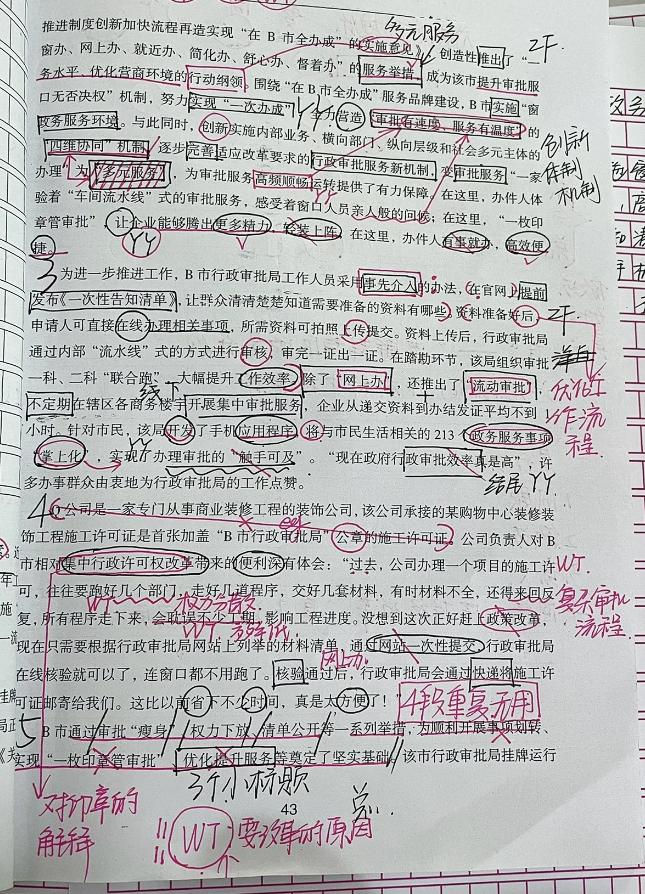 多元服务
推进制度创新加快流程再造实现“在 B 市全办成”的实施意见》，创造性推出了“一
窗办、网上办、就近办、简化办、舒心办、督着办”的服务举措，成为该市提升审批服
务水平、优化营商环境的行动纲领。围绕“在 B 市全办成”服务品牌建设，B 市实施“窗
口无否决权”机制，努力实现“一次办成”，全力营造“审批有速度、服务有温度”的
政务服务环境。与此同时，创新实施内部业务、横向部门、纵向层级和社会多元主体的
“四维协同”机制，逐步完善适应改革要求的行政审批服务新机制，变审批服务“一家
创新
体制
机制
办理”为“多元服务”，为审批服务高频顺畅运转提供了有力保障。在这里，办件人体
验着“车间流水线”式的审批服务，感受着窗口人员亲人般的问候；在这里，“一枚印
章管审批”，让企业能够腾出更多精力、轻装上阵。在这里，办件人有事就办，高效便
捷。
3
为进一步推进工作，B 市行政审批局工作人员采用事先介入的办法，在官网上提前
发布《一次性告知清单》，让群众清清楚楚知道需要准备的资料有哪些，资料准备好后，
申请人可直接在线办理相关事项，所需资料可拍照上传提交。资料上传后，行政审批局
通过内部“流水线”式的方式进行审核，审完一证出一证。在踏勘环节，该局组织审批
一科、二科“联合跑”，大幅提升工作效率。除了“网上办”，还推出了“流动审批”，
优化工
作流
程
线下
不定期在辖区各商务楼宇开展集中审批服务，企业从递交资料到办结发证平均不到
小时。针对市民，该局开发了手机应用程序，将与市民生活相关的 213 个政务服务事项
“掌上化”，实现了办理审批的“触手可及”。“现在政府行政审批效率真是高”，许
多办事群众由衷地为行政审批局的工作点赞。
结尾 YY
4
公司是一家专门从事商业装修工程的装饰公司，该公司承接的某购物中心装修装
饰工程施工许可证是首张加盖“B 市行政审批局”公章的施工许可证。公司负责人对 B
市相对集中行政许可权改革带来的便利深有体会：“过去，公司办理一个项目的施工许
WT.
可，往往要跑好几个部门，走好几道程序，交好几套材料，有时材料不全，还得来回反
WT 权力分散
复杂审批
流程.
复，所有程序走下来，会耽误不少工期，影响工程进度。没想到这次正好赶上政策改革，
WT. 效率低
现在只需要根据行政审批局网站上列举的材料清单，通过网站一次性提交，行政审批局
网上办.
在线核验就可以了，连窗口都不用跑了。核验通过后，行政审批局会通过快递将施工许
可证邮寄给我们。这比以前省下不少时间，真是太方便了！
4段重复无用
5
B 市通过审批“瘦身”、权力下放、清单公开等一系列举措，为顺利开展事项划转、
实现“一枚印章管审批”、优化提升服务等奠定了坚实基础。该市行政审批局挂牌运行
3个小标题
43
对印章的
解释
WT 要改革的原因